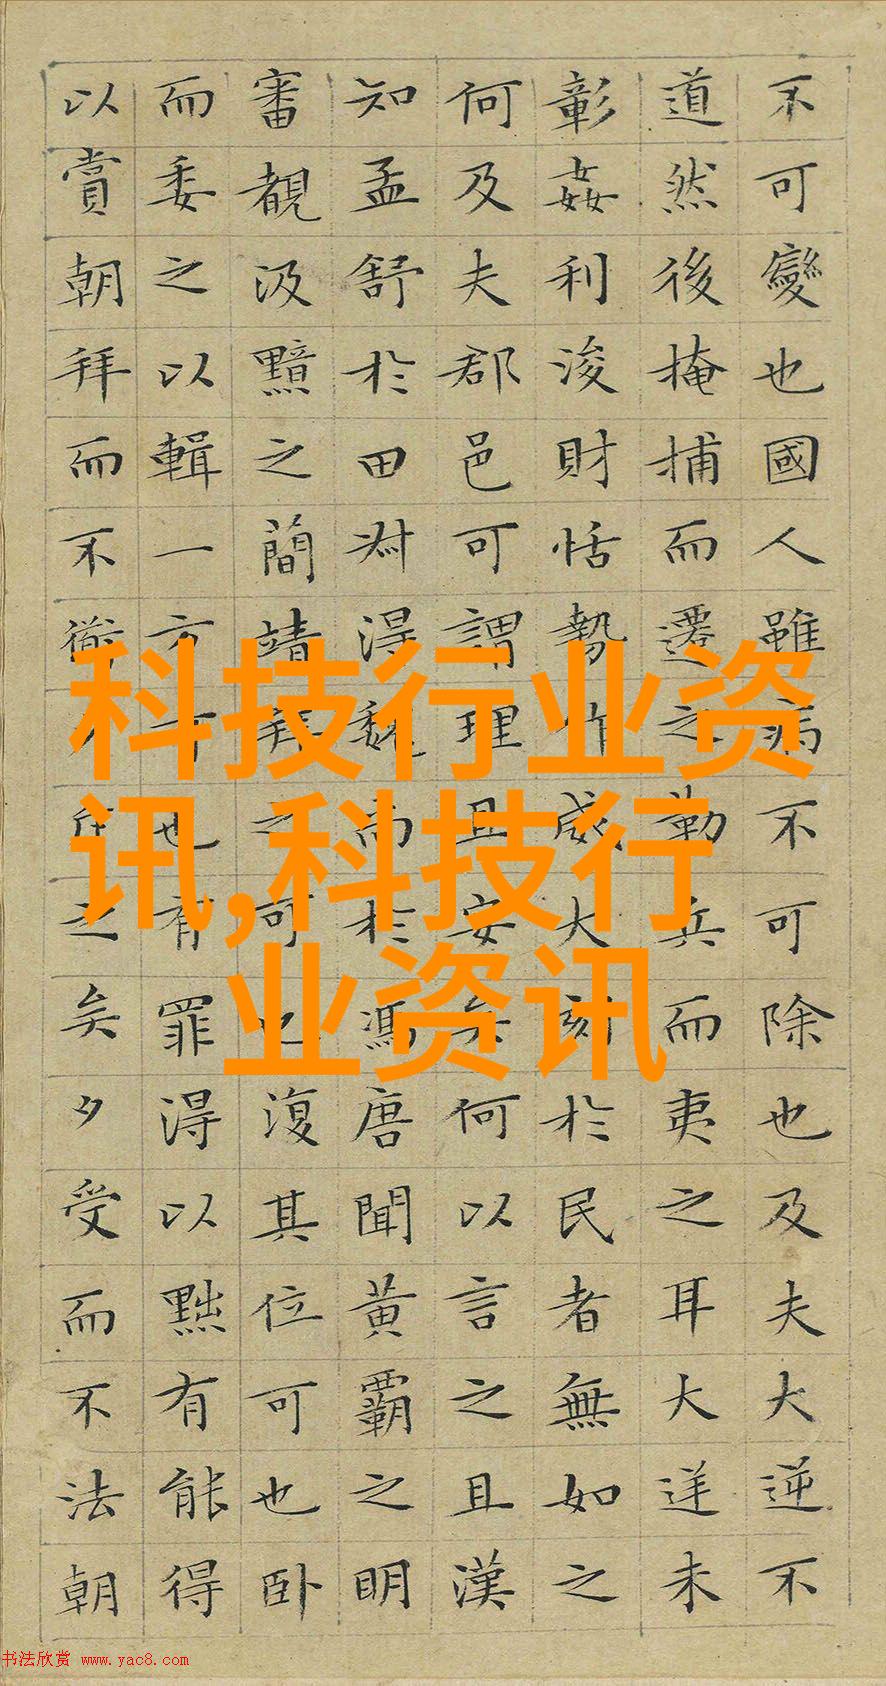 不可變也國人雖病不可除也及夫大逆不
道然後掩捕而遷之勒兵而夷之耳大逆未
彰姦利浚財恬勢作威大刻於民者無如之
何及夫郡邑可謂理且安矣何以言之且漢
知孟舒於田叔得魏尚於馮唐聞黃霸之明
審覩汲黯之簡靖拜之可也復其位可也卧
而委之以輯一方可也有罪得以黜有能得
以賞朝拜而不衟夕斥之矣夕受而不法朝
科技行业资
讯,科技行
业资讯
书法欣赏 www.yac8.com